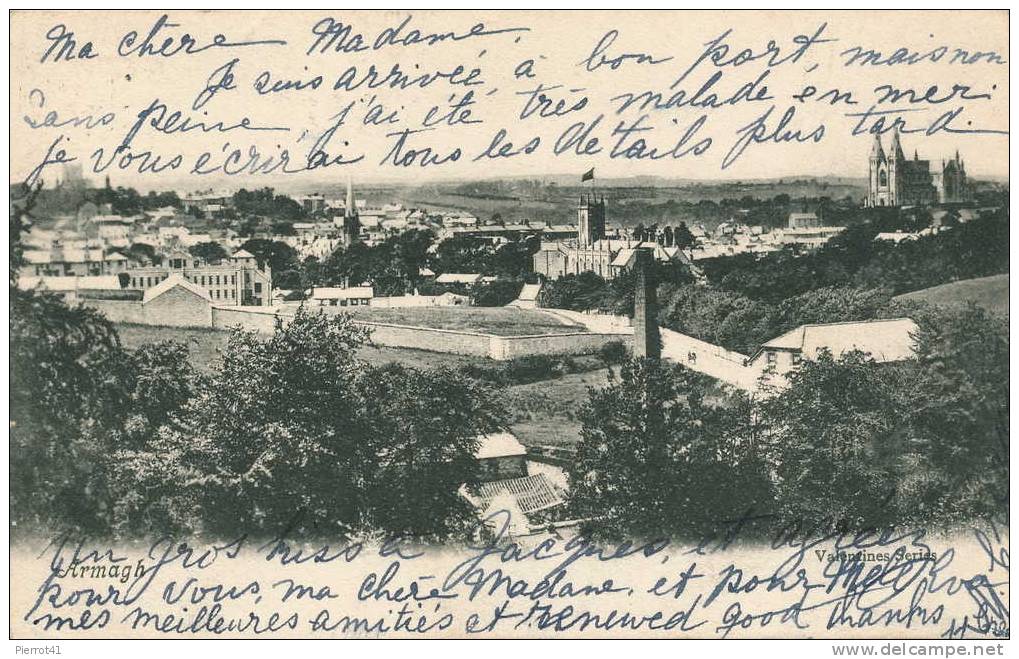 Ma chère Madame,
Je suis arrivée à bon port, mais non
sans peine, j'ai été très malade en mer.
Je vous écrirai tous les détails plus tard.
Valentines Series
Armagh
Un gros kiss à Jacques, et agréez
pour vous, ma chère Madame, et pour Melle
mes meilleures amitiés et renewed good thanks
Pierrot41
delcampe.net